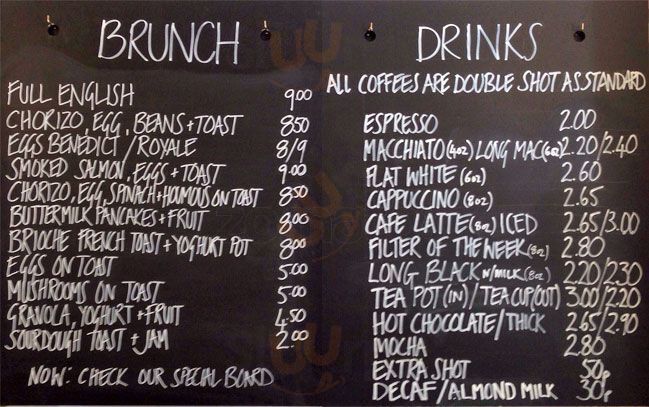 BRUNCH
FULL ENGLISH 9.00
CHORIZO, EGG, BEANS + TOAST 8.50
EGGS BENEDICT / ROYALE 8/9
SMOKED SALMON, EGGS + TOAST 9.00
CHORIZO, EGG, SPINACH + HOUMOUS ON TOAST 8.50
BUTTERMILK PANCAKES + FRUIT 8.00
BRIOCHE FRENCH TOAST + YOGHURT POT 8.00
EGGS ON TOAST 5.00
MUSHROOMS ON TOAST 5.00
GRANOLA, YOGHURT + FRUIT 4.50
SOURDOUGH TOAST + JAM 2.00
NOW: CHECK OUR SPECIAL BOARD
DRINKS
ALL COFFEES ARE DOUBLE SHOT AS STANDARD
ESPRESSO 2.00
MACCHIATO (4oz) LONG MAC (6oz) 2.20/2.40
FLAT WHITE (6oz) 2.60
CAPPUCCINO (8oz) 2.65
CAFE LATTE (8oz) ICED 2.65/3.00
FILTER OF THE WEEK (8oz) 2.80
LONG BLACK W/MILK (8oz) 2.20/2.30
TEA POT (IN) / TEA CUP (OUT) 3.00/2.20
HOT CHOCOLATE / THICK 2.65/2.90
MOCHA 2.80
EXTRA SHOT 50p
DECAF / ALMOND MILK 30p